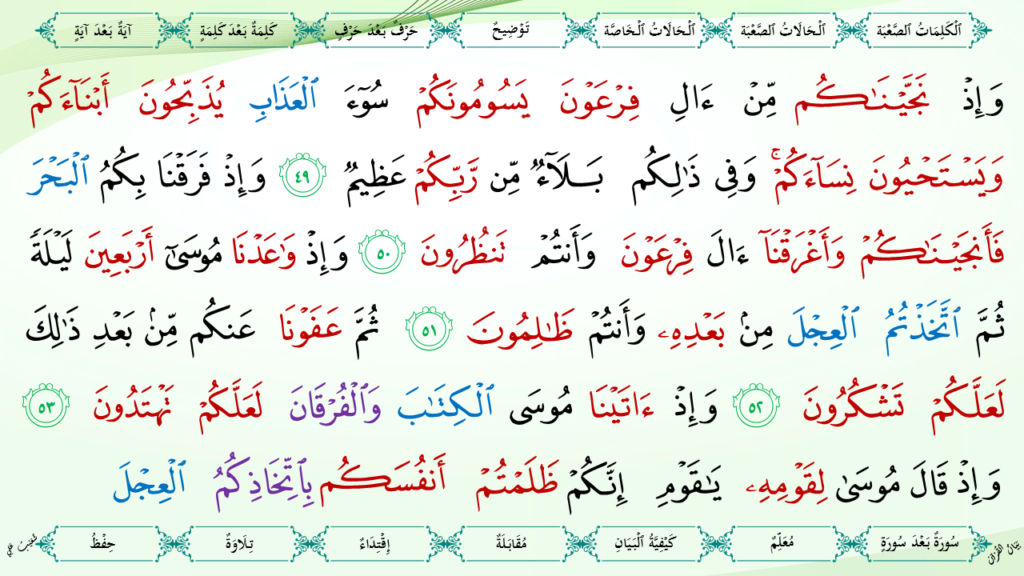 ٱلْكَلِمَاتُ ٱلصَّعْبَة ٱلْحَالَاتُ ٱلصَّعْبَة ٱلْحَالَاتُ ٱلْخَاصَّة تَوْضِيحٌ حَرْفٌ بَعْدَ حَرْفٍ كَلِمَةٌ بَعْدَ كَلِمَةٍ آيَةٌ بَعْدَ آيَةٍ
وَإِذْ نَجَّيْنَـٰكُم مِّنْ ءَالِ فِرْعَوْنَ يَسُومُونَكُمْ سُوٓءَ ٱلْعَذَابِ يُذَبِّحُونَ أَبْنَآءَكُمْ
وَيَسْتَحْيُونَ نِسَآءَكُمْ ۚ وَفِى ذَٰلِكُم بَلَآءٌ مِّن رَّبِّكُمْ عَظِيمٌ ٤٩ وَإِذْ فَرَقْنَا بِكُمُ ٱلْبَحْرَ
فَأَنجَيْنَـٰكُمْ وَأَغْرَقْنَآ ءَالَ فِرْعَوْنَ وَأَنتُمْ تَنظُرُونَ ٥٠ وَإِذْ وَٰعَدْنَا مُوسَىٰٓ أَرْبَعِينَ لَيْلَةً
ثُمَّ ٱتَّخَذْتُمُ ٱلْعِجْلَ مِنۢ بَعْدِهِۦ وَأَنتُمْ ظَـٰلِمُونَ ٥١ ثُمَّ عَفَوْنَا عَنكُم مِّنۢ بَعْدِ ذَٰلِكَ
لَعَلَّكُمْ تَشْكُرُونَ ٥٢ وَإِذْ ءَاتَيْنَا مُوسَى ٱلْكِتَـٰبَ وَٱلْفُرْقَانَ لَعَلَّكُمْ تَهْتَدُونَ ٥٣
وَإِذْ قَالَ مُوسَىٰ لِقَوْمِهِۦ يَـٰقَوْمِ إِنَّكُمْ ظَلَمْتُمْ أَنفُسَكُم بِٱتِّخَاذِكُمُ ٱلْعِجْلَ
سُورَةٌ بَعْدَ سُورَةٍ مُعَلِّمٌ كَيْفِيَّةُ ٱلْبَيَانِ مُقَابَلَةٌ إِقْتِدَاءٌ تِلَاوَةٌ حِفْظٌ